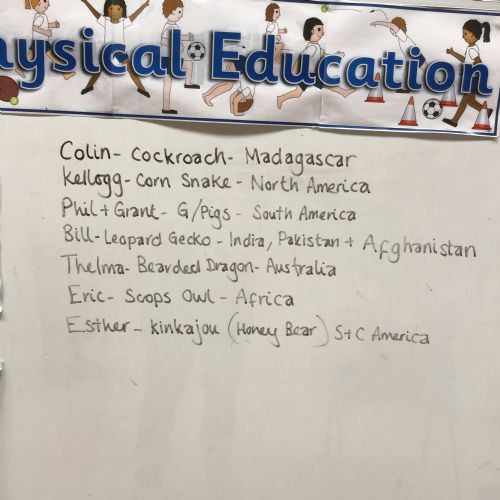 Physical Education
Colin- Cockroach- Madagascar
Kellogg- Corn Snake - North America
Phil + Grant - G/Pigs - South America
Bill- Leopard Gecko - India, Pakistan + Afghanistan
Thelma- Bearded Dragon- Australia
Eric- Scops Owl - Africa
Esther - Kinkajou (Honey Bear) S+C America